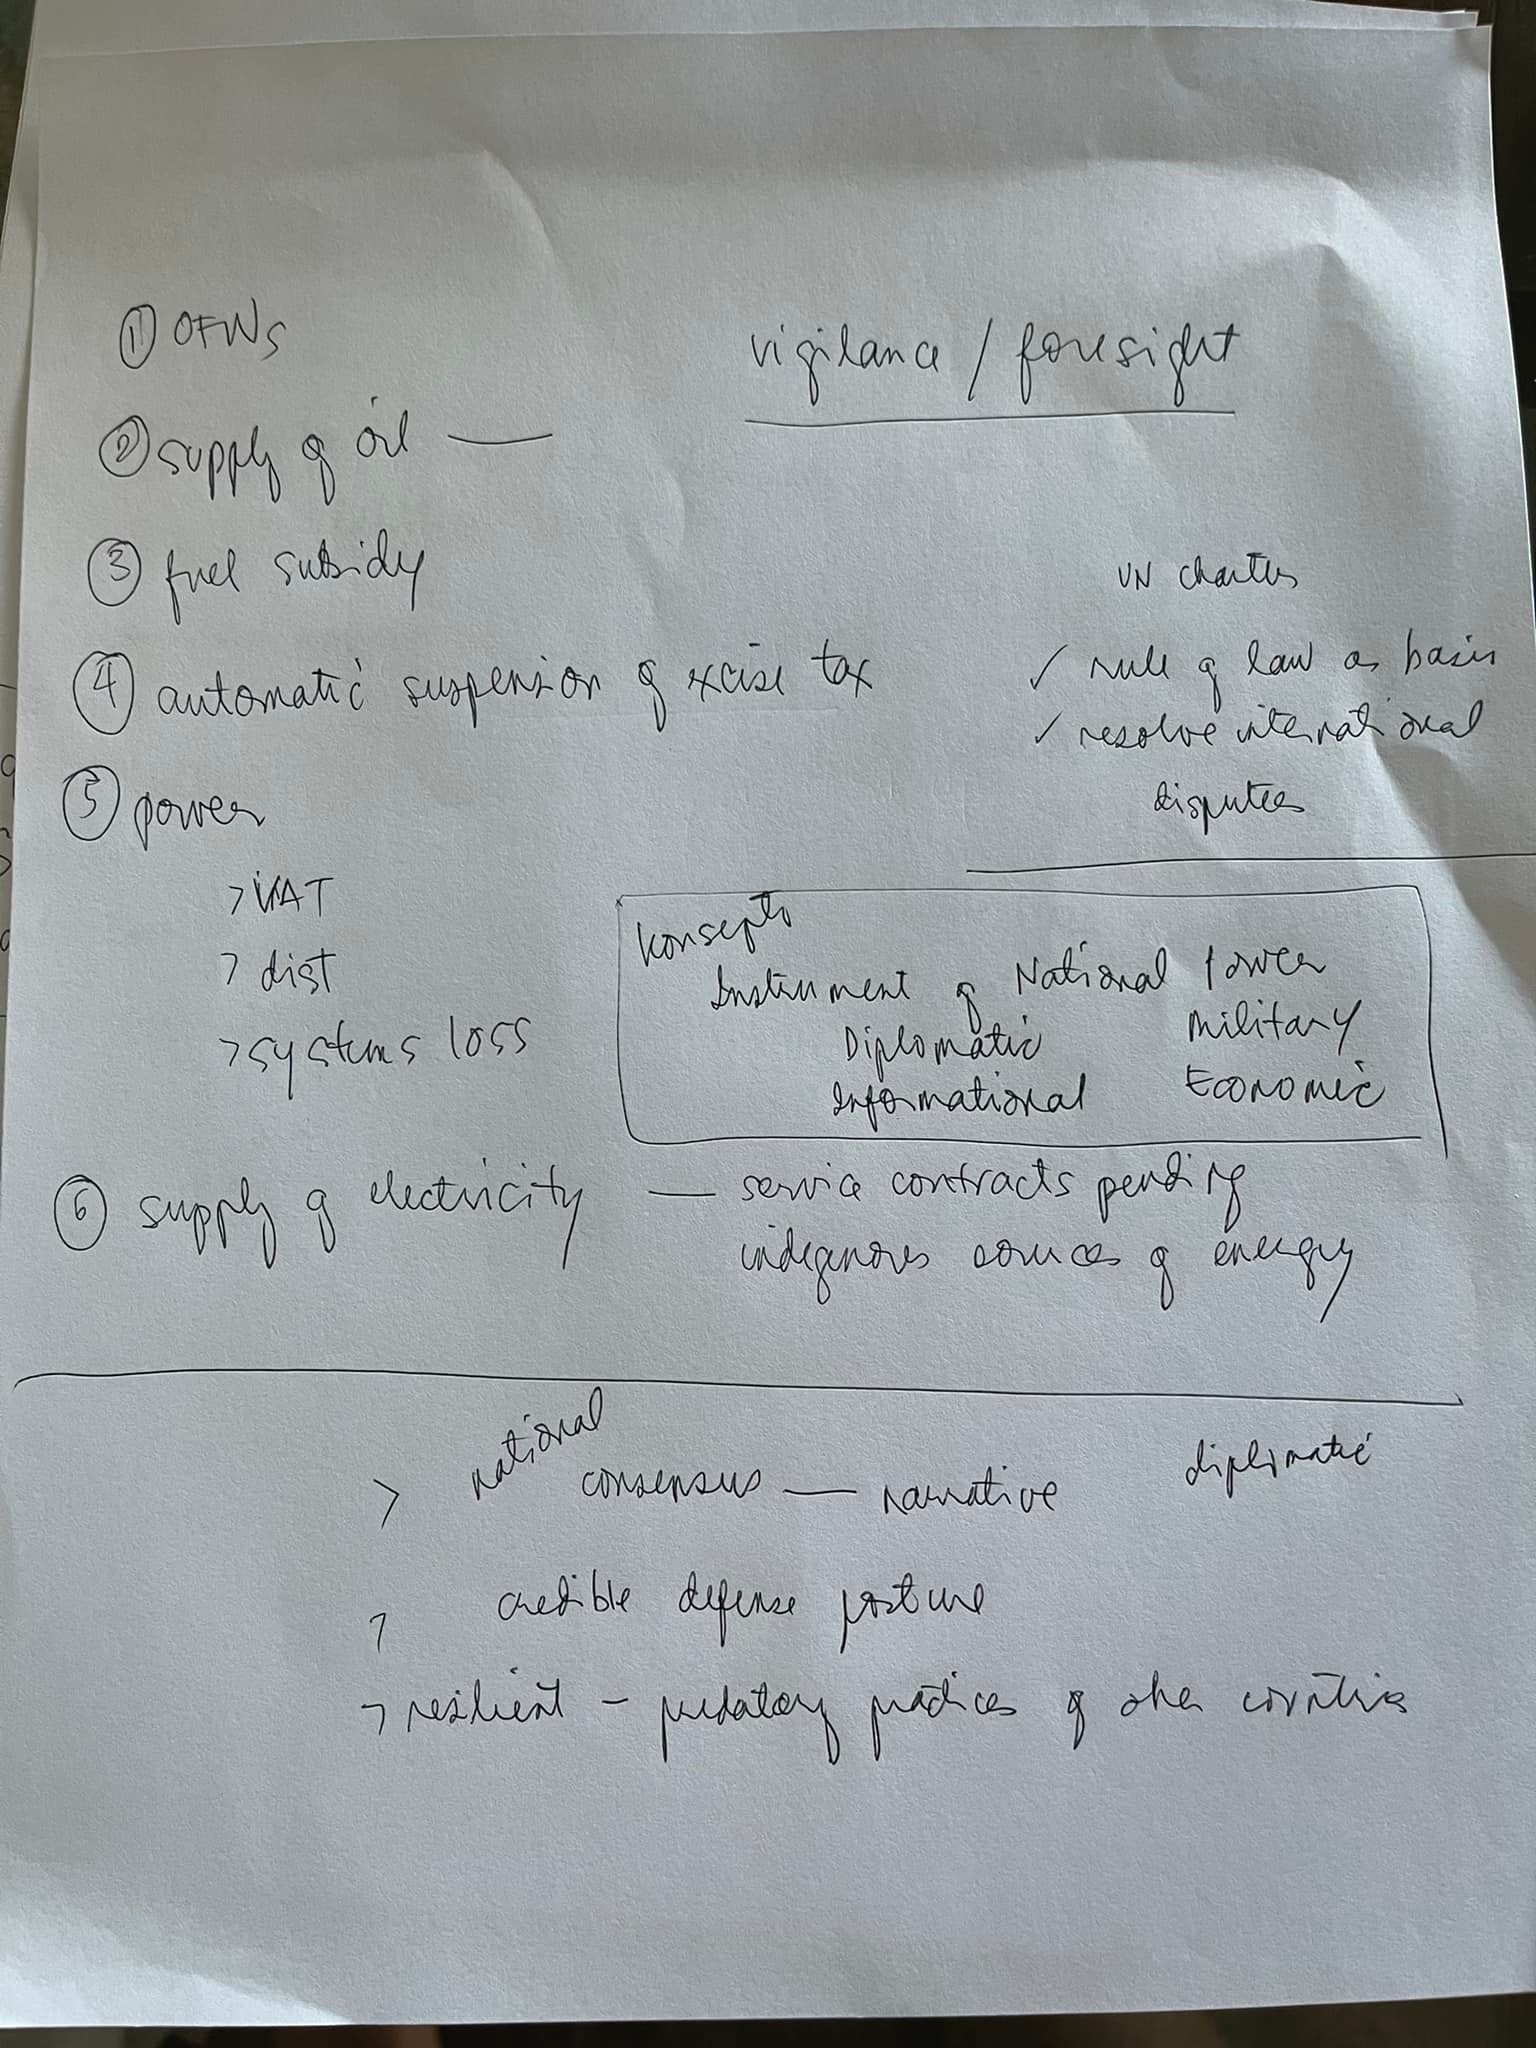 ① OFWs
vigilance / foresight
② supply of oil —
③ fuel subsidy
④ automatic suspension of excise tax
UN charter
✓ rule of law as basis
✓ resolve international
disputes
⑤ power
> VAT
> dist
> systems loss
Konsepto
Instrument of National Power
Diplomatic Military
Informational Economic
⑥ supply of electricity — service contracts pending
indigenous sources of energy
> national consensus — narrative diplomatic
> credible defense posture
> resilient - predatory practices of other countries